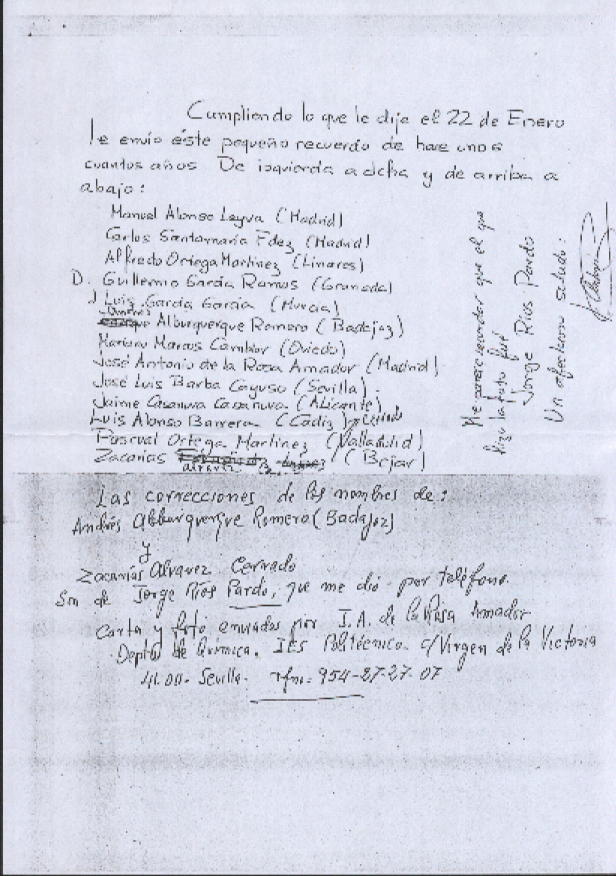 Cumpliendo lo que le dije el 22 de Enero
le envío éste pequeño recuerdo de hace unos
cuantos años. De izquierda a dcha y de arriba a
abajo:
Manuel Alonso Leyva (Madrid)
Carlos Santamaría Fdez (Madrid)
Alfredo Ortega Martinez (Linares)
D. Guillermo García Ramos (Granada)
J Luis García García (Murcia)
Andrés Alburquerque Romero (Badajoz)
Mariano Marcos Cambior (Oviedo)
José Antonio de la Rosa Amador (Madrid)
José Luis Barba Cayuso (Sevilla)
Jaime Casanova Casanova (Alicante)
Luis Alonso Barrera (Cádiz) Cerrado
Pascual Ortega Martinez (Valladolid)
Zacarías alvarez (Bejar)
Me parece recordar que el que
hizo la foto fué
Jorge Ríos Pardo
Un afectuoso saludo:
Las correcciones de los nombres de:
Andrés Albburquerque Romero (Badajoz)
y
Zacarías Alvarez Cerrado
Son de Jorge Ríos Pardo, que me dió por teléfono.
Carta y foto enviadas por J.A. de la Rosa Amador
Depto de Química. IES Politécnico. C/Virgen de la Victoria
41.00- Sevilla. Tfno. 954-27-27-07